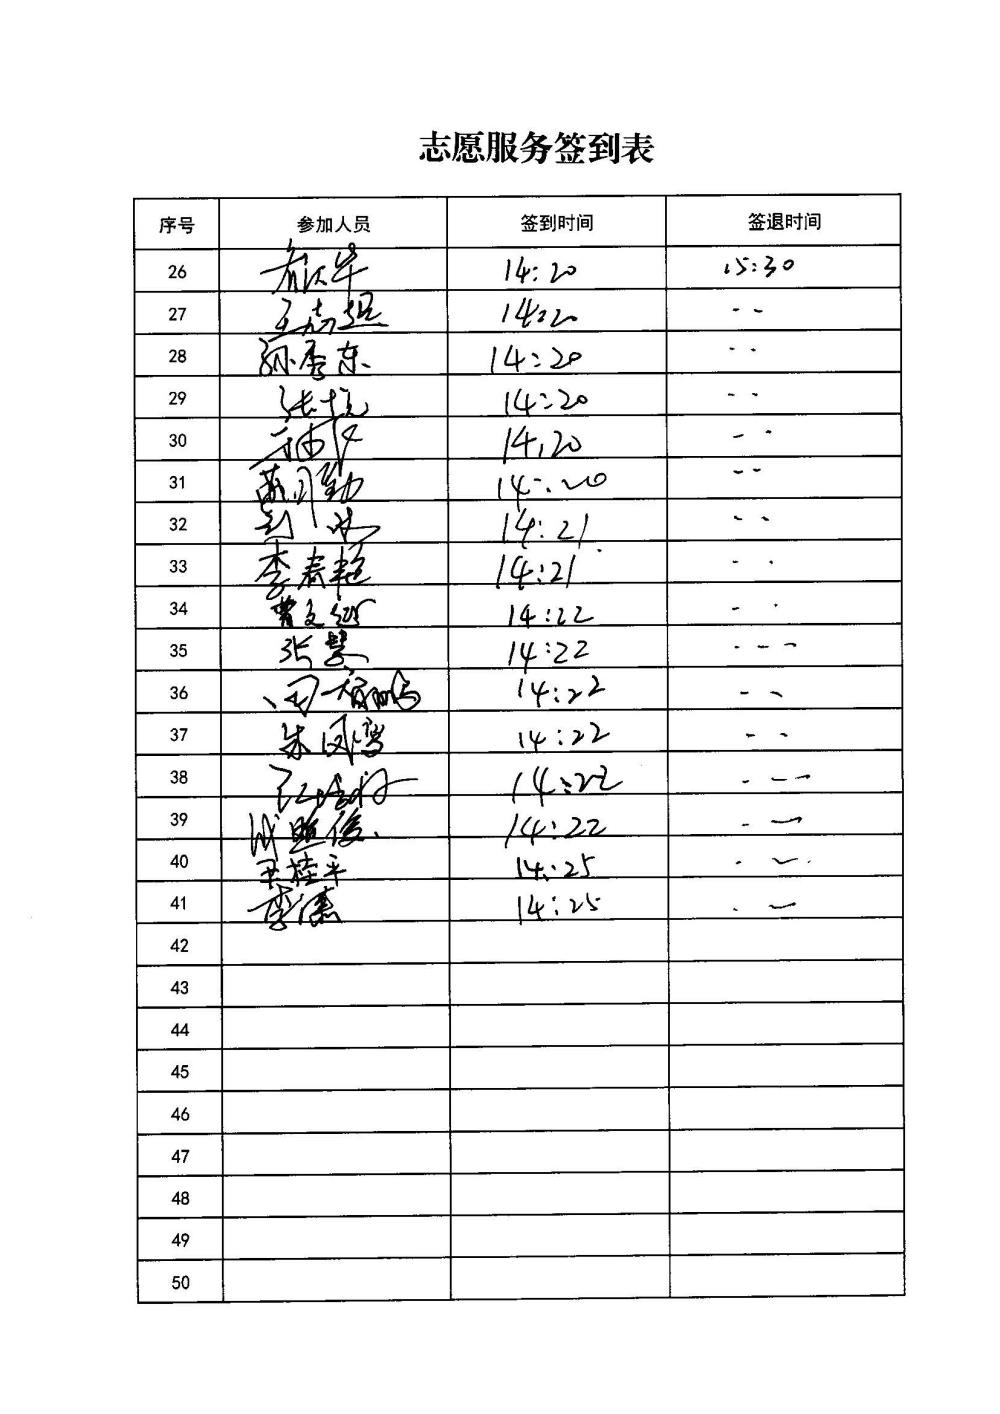 志愿服务签到表
序号 参加人员 签到时间 签退时间
26 14:20 15:30
27 王 14:20 --
28 孙秀东 14:20 --
29 张 14:20 --
30 14:20 --
31 14:20 --
32 刘冰 14:21 --
33 李春艳 14:21 --
34 曹文 14:22 --
35 张慧 14:22 --
36 田 14:22 --
37 朱凤鸾 14:22 --
38 14:22 --
39 14:22 --
40 王桂平 14:25 --
41 李 14:25 --
42
43
44
45
46
47
48
49
50